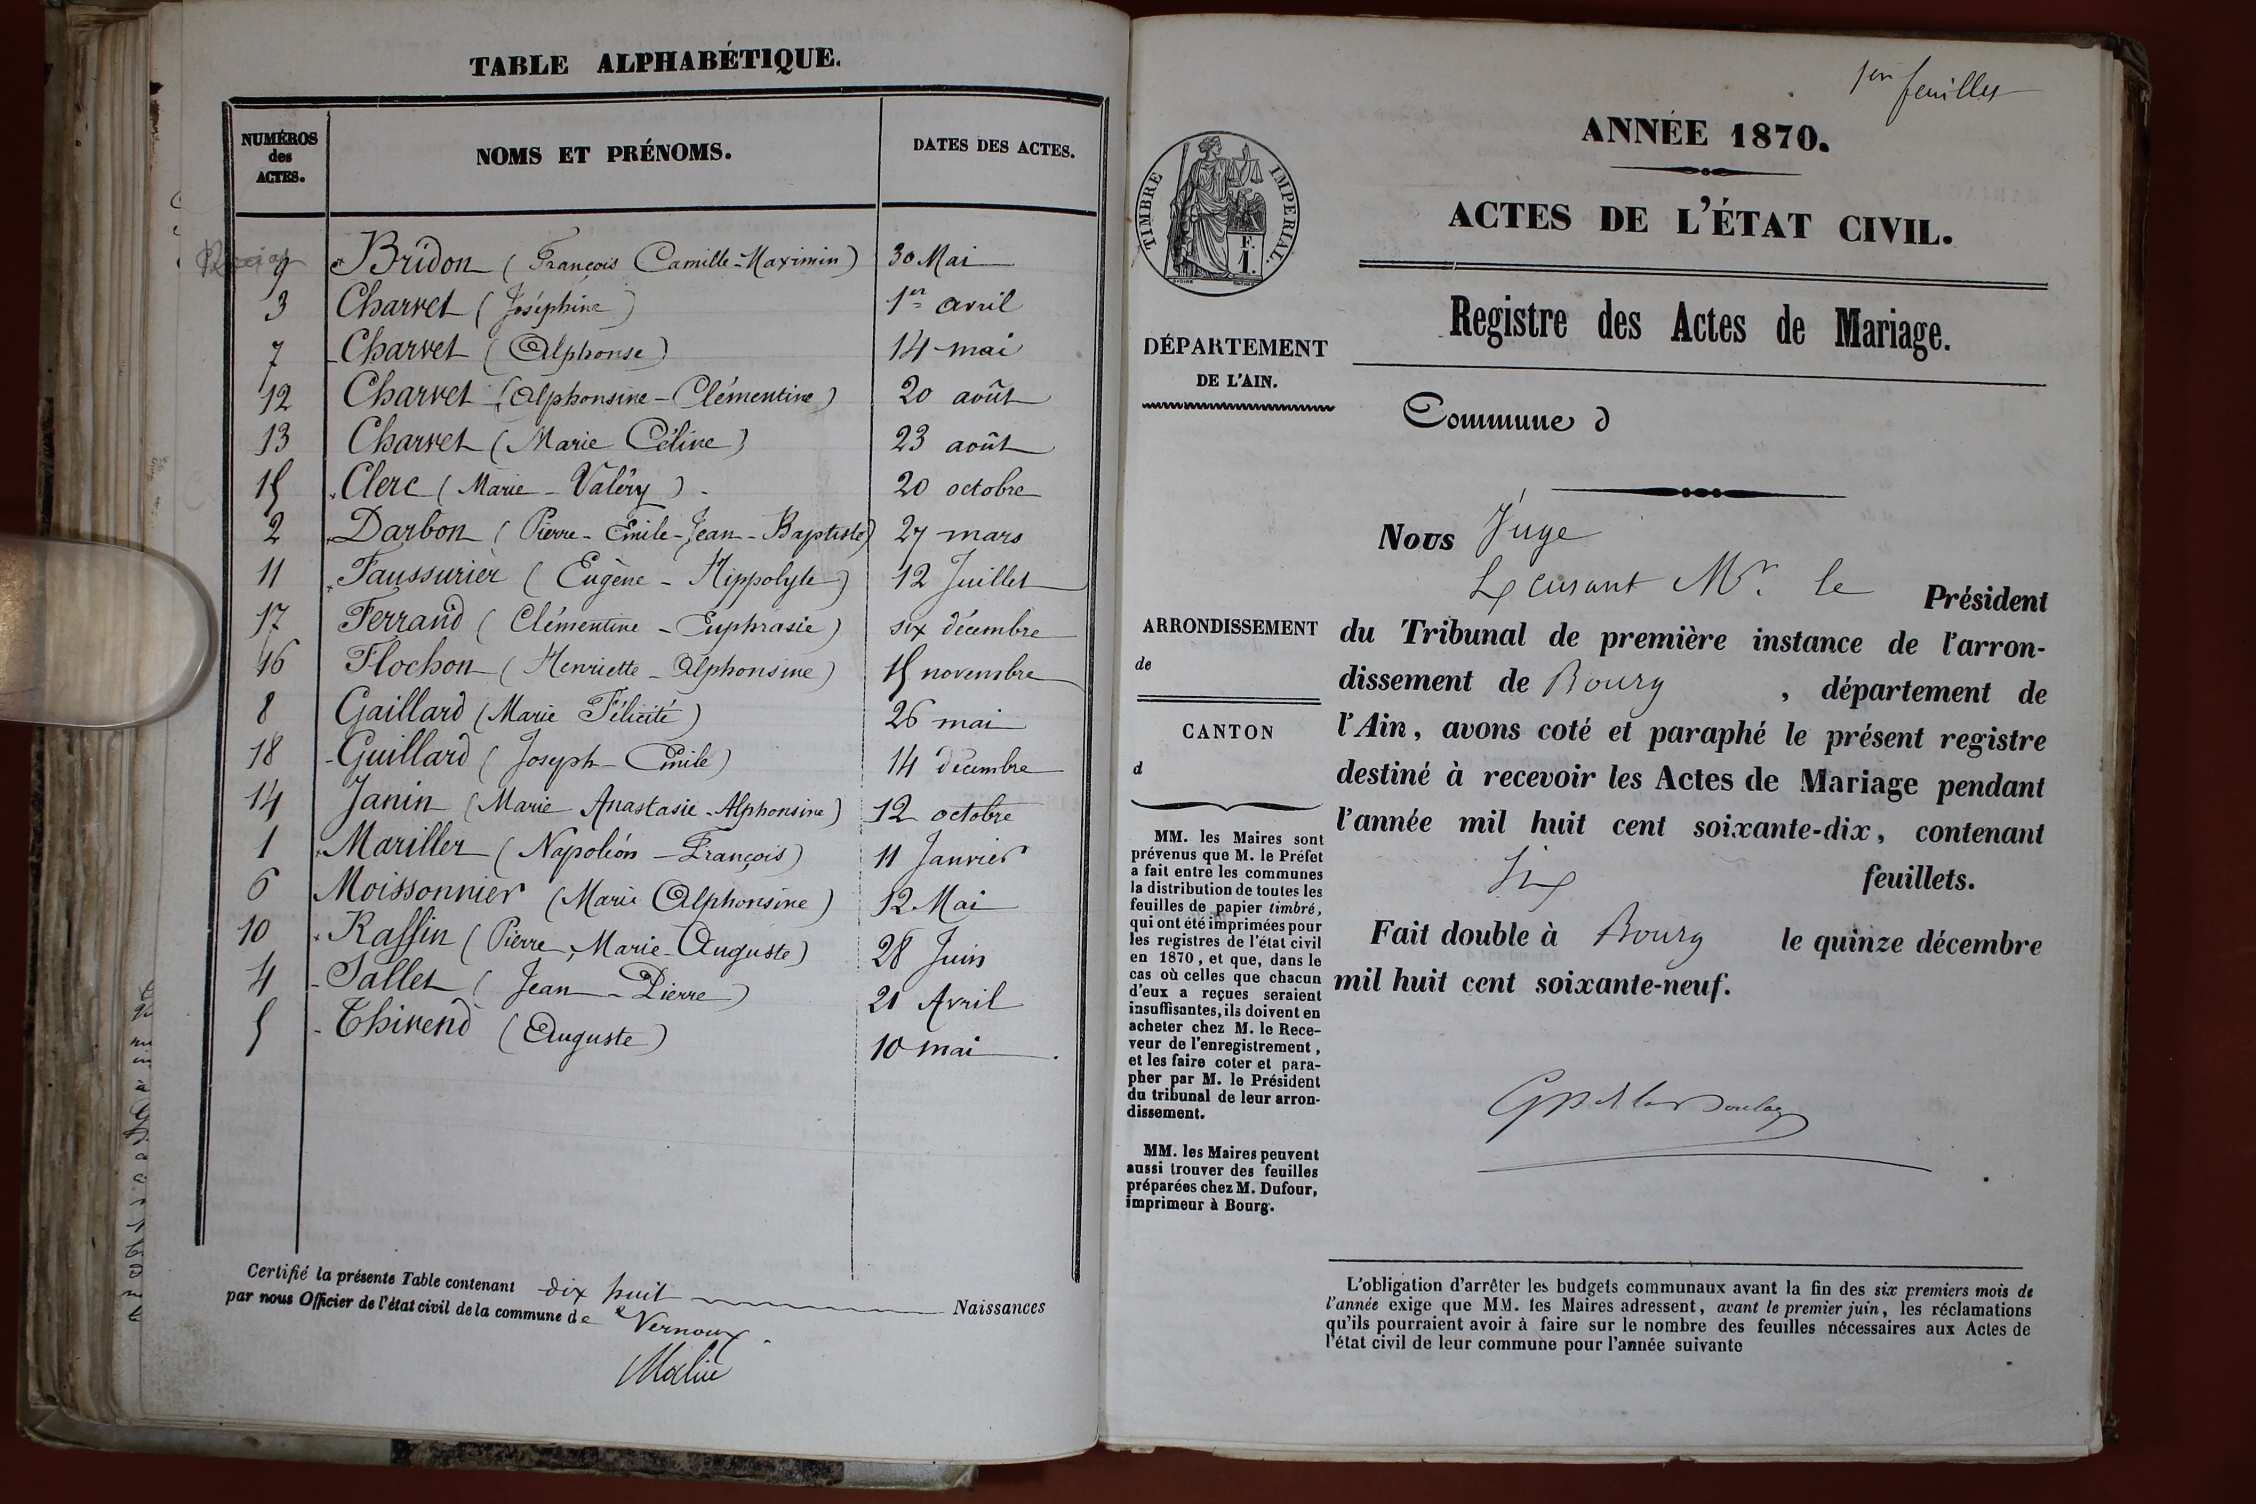 TABLE ALPHABÉTIQUE.
NUMÉROS des ACTES. NOMS ET PRÉNOMS. DATES DES ACTES.
9 Bridon (François Camille-Maximin) 30 Mai
3 Charvet (Joséphine) 1er avril
7 Charvet (Alphonse) 14 mai
12 Charvet (Alphonsine-Clémentine) 20 août
13 Charvet (Marie Céline) 23 août
15 Clerc (Marie-Valéry). 20 octobre
2 Darbon (Pierre-Emile-Jean-Baptiste) 27 mars
11 Faussurier (Eugène-Hippolyte) 12 Juillet
17 Ferrand (Clémentine-Euphrasie) six décembre
16 Flochon (Henriette-Alphonsine) 15 novembre
8 Gaillard (Marie Félicité) 26 mai
18 Guillard (Joseph-Emile) 14 décembre
14 Janin (Marie Anastasie-Alphonsine) 12 octobre
1 Mariller (Napoléon-François) 11 Janvier
6 Moissonnier (Marie Alphonsine) 12 Mai
10 Raffin (Pierre, Marie-Auguste) 28 Juin
4 Sallet (Jean-Pierre) 21 Avril
5 Thivend (Auguste) 10 mai
Certifié la présente Table contenant dix huit Naissances
par nous Officier de l'état civil de la commune de Vernoux.
1er feuillet
ANNÉE 1870.
ACTES DE L'ÉTAT CIVIL.
Registre des Actes de Mariage.
TIMBRE IMPERIAL.
F.
1.
DÉPARTEMENT
DE L'AIN.
Commune d
ARRONDISSEMENT
de
CANTON
d
MM. les Maires sont
prévenus que M. le Préfet
a fait entre les communes
la distribution de toutes les
feuilles de papier timbré,
qui ont été imprimées pour
les registres de l'état civil
en 1870, et que, dans le
cas où celles que chacun
d'eux a reçues seraient
insuffisantes, ils doivent en
acheter chez M. le Rece-
veur de l'enregistrement,
et les faire coter et para-
pher par M. le Président
du tribunal de leur arron-
dissement.
MM. les Maires peuvent
aussi trouver des feuilles
préparées chez M. Dufour,
imprimeur à Bourg.
Nous Juge
Mr. le Président
du Tribunal de première instance de l'arron-
dissement de Bourg, département de
l'Ain, avons coté et paraphé le présent registre
destiné à recevoir les Actes de Mariage pendant
l'année mil huit cent soixante-dix, contenant
Six feuillets.
Fait double à Bourg le quinze décembre
mil huit cent soixante-neuf.
L'obligation d'arrêter les budgets communaux avant la fin des six premiers mois de
l'année exige que MM. les Maires adressent, avant le premier juin, les réclamations
qu'ils pourraient avoir à faire sur le nombre des feuilles nécessaires aux Actes de
l'état civil de leur commune pour l'année suivante